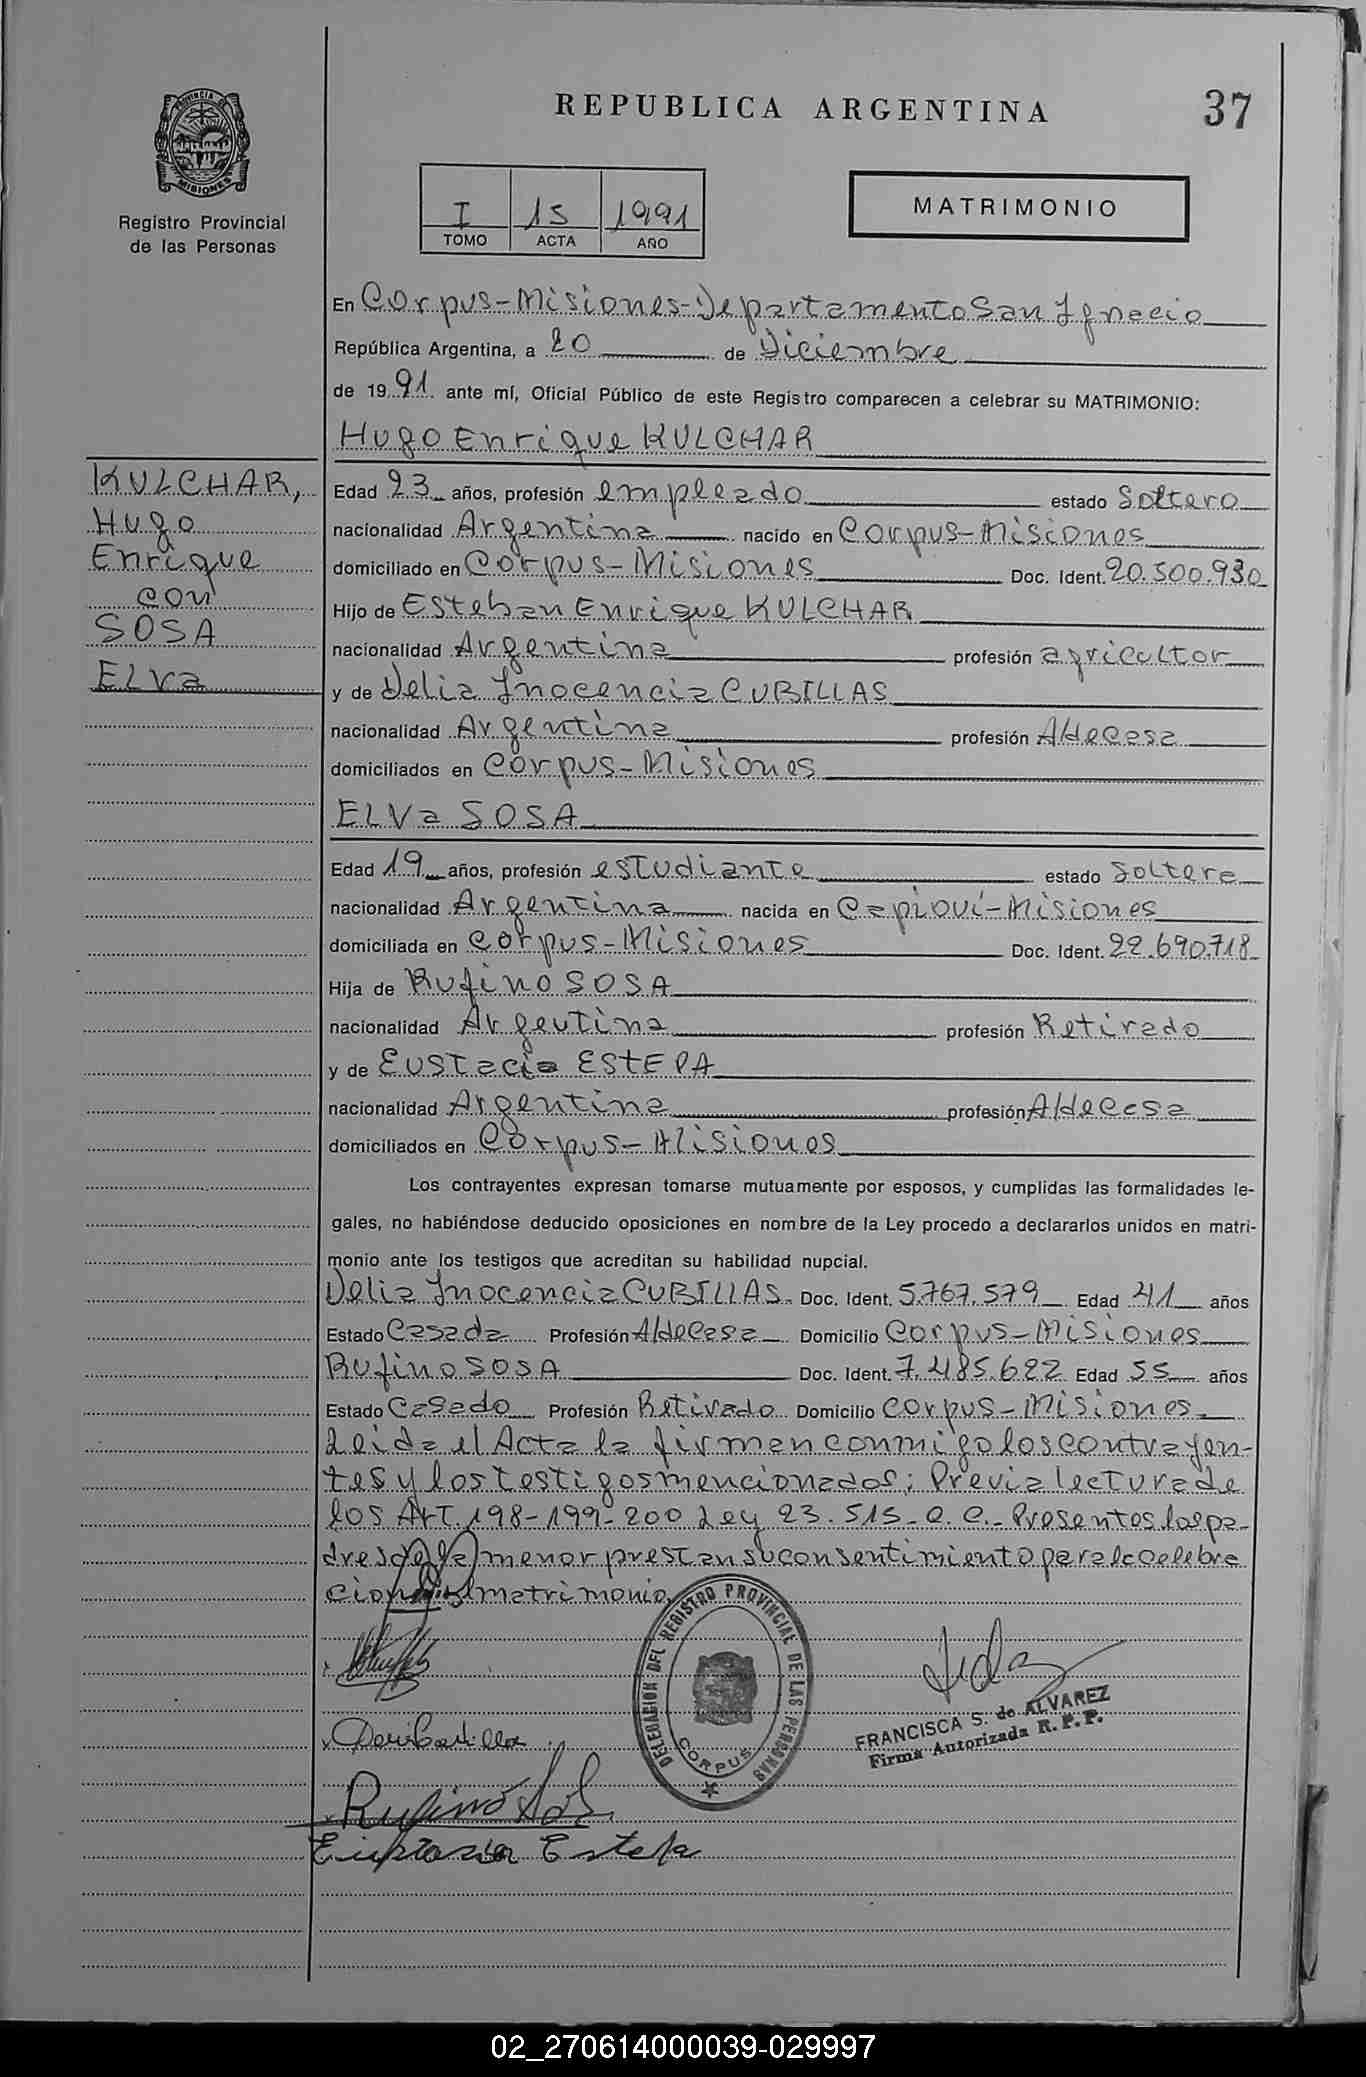 REPUBLICA ARGENTINA
37
PROVINCIA DE
MISIONES
Registro Provincial
de las Personas
I 15 1991
TOMO ACTA AÑO
MATRIMONIO
En Corpus-Misiones-Departamento San Ignacio
República Argentina, a 20 de Diciembre
de 1991 ante mí, Oficial Público de este Registro comparecen a celebrar su MATRIMONIO:
Hugo Enrique KULCHAR
KULCHAR,
Hugo
Enrique
con
SOSA
ELVa
Edad 23 años, profesión empleado estado Soltero
nacionalidad Argentina nacido en Corpus-Misiones
domiciliado en Corpus-Misiones Doc. Ident. 20.500.930
Hijo de Esteban Enrique KULCHAR
nacionalidad Argentina profesión agricultor
y de Delia Inocencia CUBILLAS
nacionalidad Argentina profesión AddeCasa
domiciliados en Corpus-Misiones
ELVa SOSA
Edad 19 años, profesión estudiante estado Soltera
nacionalidad Argentina nacida en Capioví-Misiones
domiciliada en Corpus-Misiones Doc. Ident. 22.690.718
Hija de Rufino SOSA
nacionalidad Argentina profesión Retirado
y de Eustacia ESTEPA
nacionalidad Argentina profesión AddeCasa
domiciliados en Corpus-Misiones
Los contrayentes expresan tomarse mutuamente por esposos, y cumplidas las formalidades le-
gales, no habiéndose deducido oposiciones en nombre de la Ley procedo a declararlos unidos en matri-
monio ante los testigos que acreditan su habilidad nupcial.
Delia Inocencia CUBILLAS Doc. Ident. 5.767.579 Edad 41 años
Estado Casada Profesión AddeCasa Domicilio Corpus-Misiones
Rufino SOSA Doc. Ident. 7.485.622 Edad 55 años
Estado Casado Profesión Retirado Domicilio Corpus-Misiones
Leida el Acta la firman conmigo los contrayen-
tes y los testigos mencionados; Previa lectura de
los Art. 198-199-200 Ley 23.515-C.C.- Presentes los pa-
dres de la menor prestan su consentimiento para la celebra
cion del matrimonio.
DELEGACION DEL REGISTRO PROVINCIAL DE LAS PERSONAS
CORPUS
FRANCISCA S. de ALVAREZ
Firma Autorizada R. P. P.
Rufino Sosa
Eustacia Estepa
02_270614000039-029997